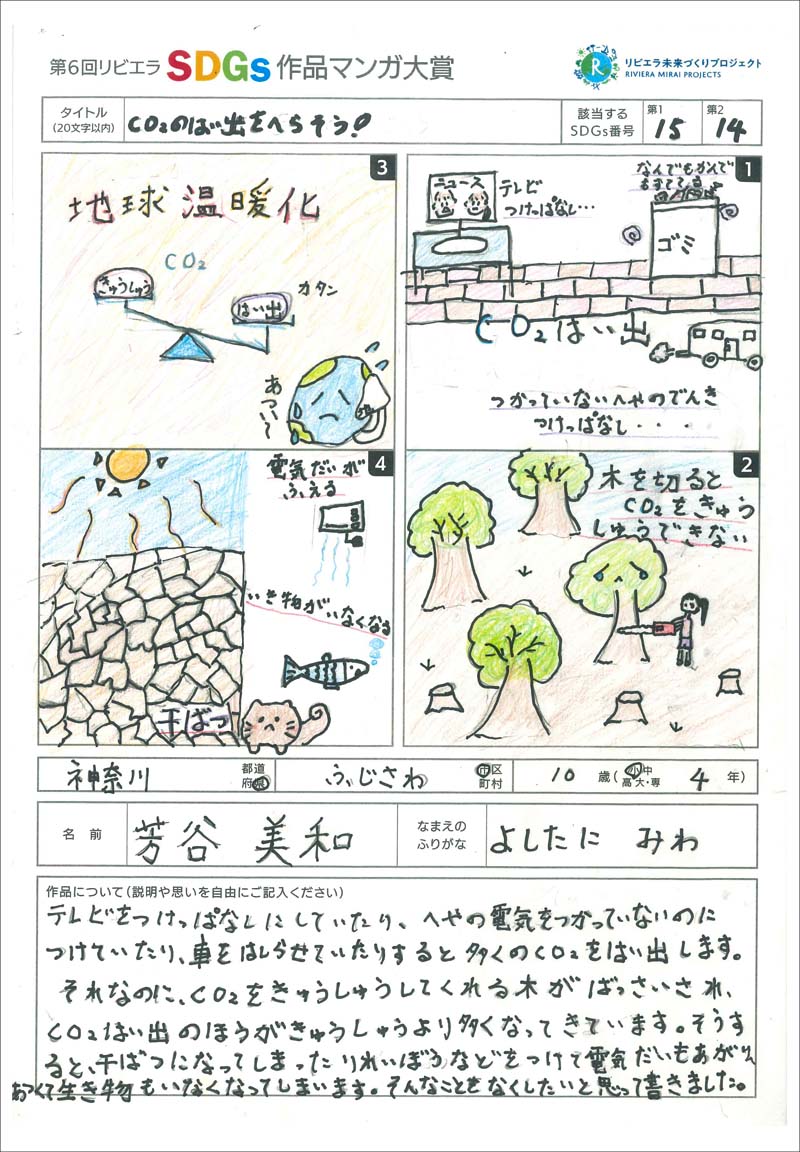 第6回リビエラ SDGs 作品マンガ大賞
リビエラ未来づくりプロジェクト
RIVIERA MIRAI PROJECTS
タイトル
(20文字以内)
CO₂のはい出をへらそう!
該当する
SDGs番号
第1
15
第2
14
1
ニュース
テレビ
つけっぱなし…
なんでもかんで
もすててる
ゴミ
CO₂はい出
つかっていないへやのでんき
つけっぱなし・・・
2
木を切ると
CO₂をきゅう
しゅうできない
3
地球温暖化
CO₂
きゅうしゅう
はい出
カタン
あつい〜
4
電気だいが
ふえる
いき物がいなくなる
干ばつ
神奈川 都道府県
ふじさわ 市区町村
10 歳(小中高大・専 4 年)
名前
芳谷 美和
なまえの
ふりがな
よしたに みわ
作品について(説明や思いを自由にご記入ください)
テレビをつけっぱなしにしていたり、へやの電気をつかっていないのに
つけていたり、車をはしらせていたりすると多くのCO₂をはい出します。
それなのに、CO₂をきゅうしゅうしてくれる木がばっさいされ、
CO₂はい出のほうがきゅうしゅうより多くなってきています。そうす
ると、干ばつになってしまったりれいぼうなどをつけて電気だいもあがり、
あつくて生き物もいなくなってしまいます。そんなことをなくしたいと思って書きました。